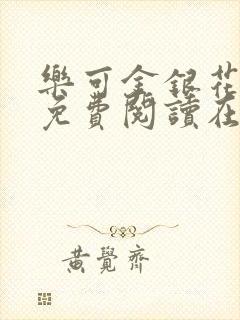 樂可金銀花
免費閱讀在
黃覺齊